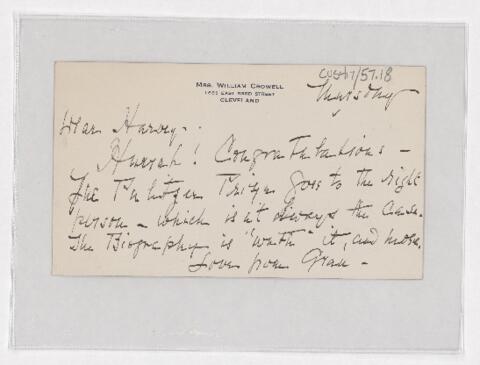 CUSH17/57.18
MRS. WILLIAM CROWELL
EAST STREET
CLEVELAND
Thursday
Dear Harvey..
Hurrah! Congratulations –
The Pulitzer Prize goes to the right
person – which isn't always the case.
The Biography is "worth" it, and more.
Love from